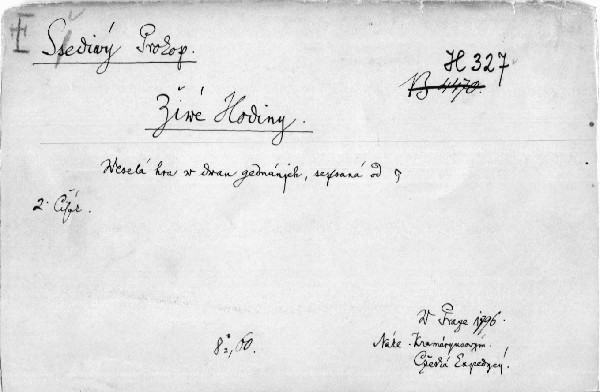 E
Ssediwý Prokop.
H 327
B 4470.
Žiwé Hodiny.
Weselá hra w dwau gednánjch, sepsaná od
2. Cžýt.
W Praze 1796.
Nákl. Kramáryusowým
Cžeská Expedicý.
8°, 60.